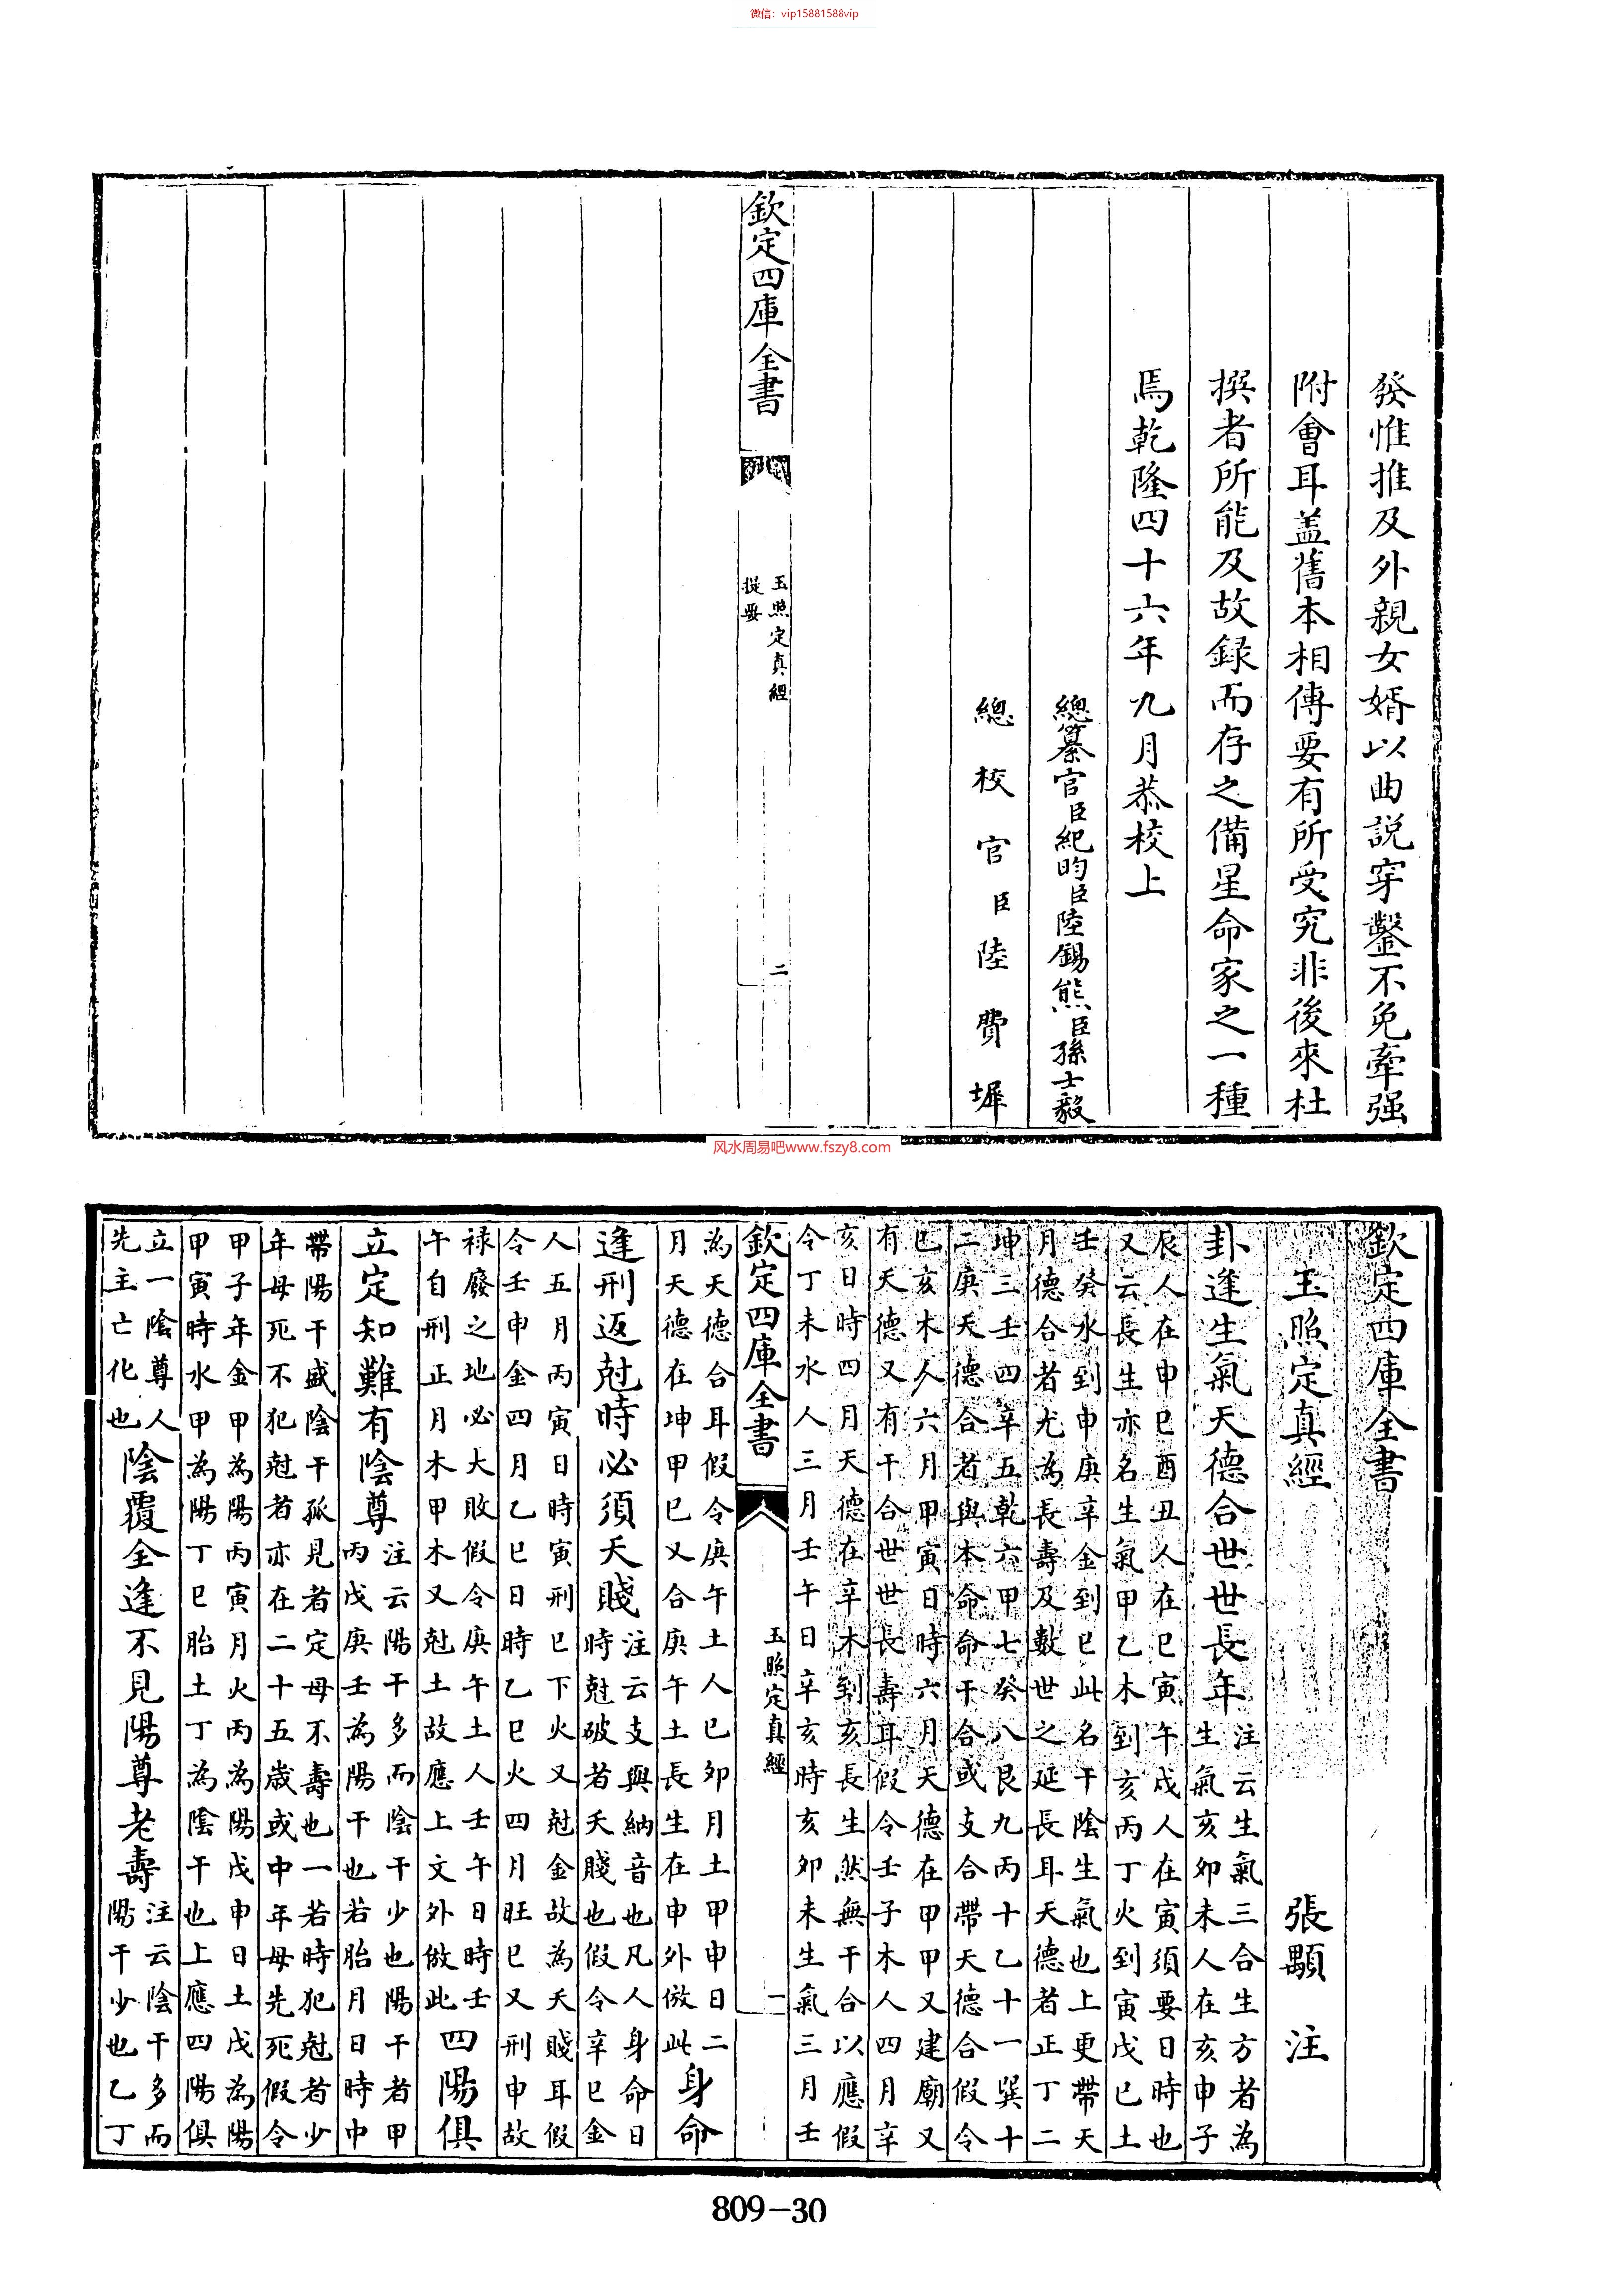 微信：vip15881588vip
發惟推及外親女婿以曲説穿鑿不免牽强
附會耳盖舊本相傳要有所受究非後來杜
撰者所能及故録而存之備星命家之一種
焉乾隆四十六年九月恭校上
總纂官臣紀昀臣陸錫熊臣孫士毅
總校官臣陸費墀
欽定四庫全書
玉照定真經
提要
二
风水周易吧www.fszy8.com
欽定四庫全書
玉照定真經
張顒 注
卦逢生氣天德合世世長年
注云生氣三合生方者為
生氣亥卯未人在亥申子
辰人在申巳酉丑人在巳寅午戌人在寅須要日時也
又云長生亦名生氣甲乙木到亥丙丁火到寅戊巳土
壬癸水到申庚辛金到巳此名干陰生氣也上更帶天
月德合者尤為長壽及數世之延長耳天德者正丁二
坤三壬四辛五乾六甲七癸八艮九丙十乙十一巽十
二庚天德合者與本命命干合或支合帶天德合假令
巳亥木人六月甲寅日時六月天德在甲甲又建廟又
有天德又有干合世世長壽耳假令壬子木人四月辛
亥日時四月天德在辛木到亥長生然無干合以應假
令丁未水人三月壬午日辛亥時亥卯未生氣三月壬
欽定四庫全書
玉照定真經
一
為天德合耳假令庚午土人巳卯月土甲申日二
月天德在坤甲巳又合庚午土長生在申外倣此
身命
逢刑返尅時必須夭賤
注云支與納音也凡人身命日
時尅破者夭賤也假令辛巳金
人五月丙寅日時寅刑巳下火又尅金故為夭賤耳假
令壬申金四月乙巳日時乙巳火四月旺巳又刑申故
禄廢之地必大敗假令庚午土人壬午日時壬
午自刑正月木甲木又尅土故應上文外倣此
四陽俱
立定知難有陰尊
注云陽干多而陰干少也陽干者甲
丙戊庚壬為陽干也若胎月日時中
帶陽干盛陰干孤見者定母不壽也一若時犯尅者少
年母死不犯尅者亦在二十五歲或中年母先死假令
甲子年金甲為陽丙寅月火丙為陽戊申日土戊為陽
甲寅時水甲為陽丁巳胎土丁為陰干也上應四陽俱
立一陰尊人
先主亡化也
陰覆全逢不見陽尊老壽
注云陰干多而
陽干少也乙丁
809-30